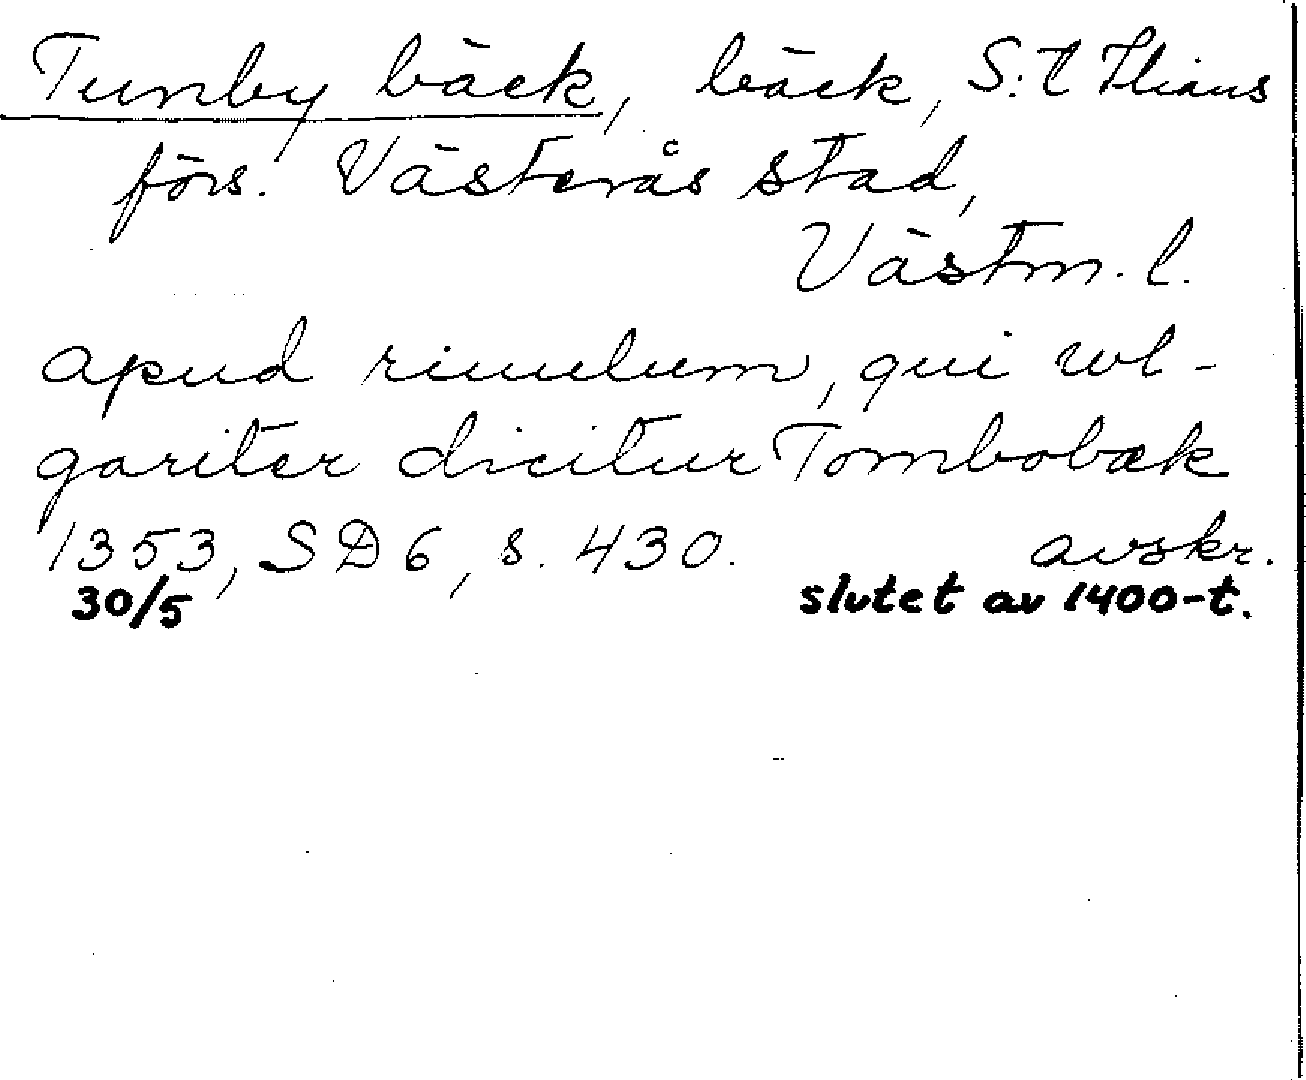 Tunby bäck, bäck, S:t Ilians
förs. Västerås stad,
Västm. l.
apud riuulum, qui wl-
gariter dicitur Tombobæk
1353, SD 6, s. 430. avskr.
30/5 slutet av 1400-t.